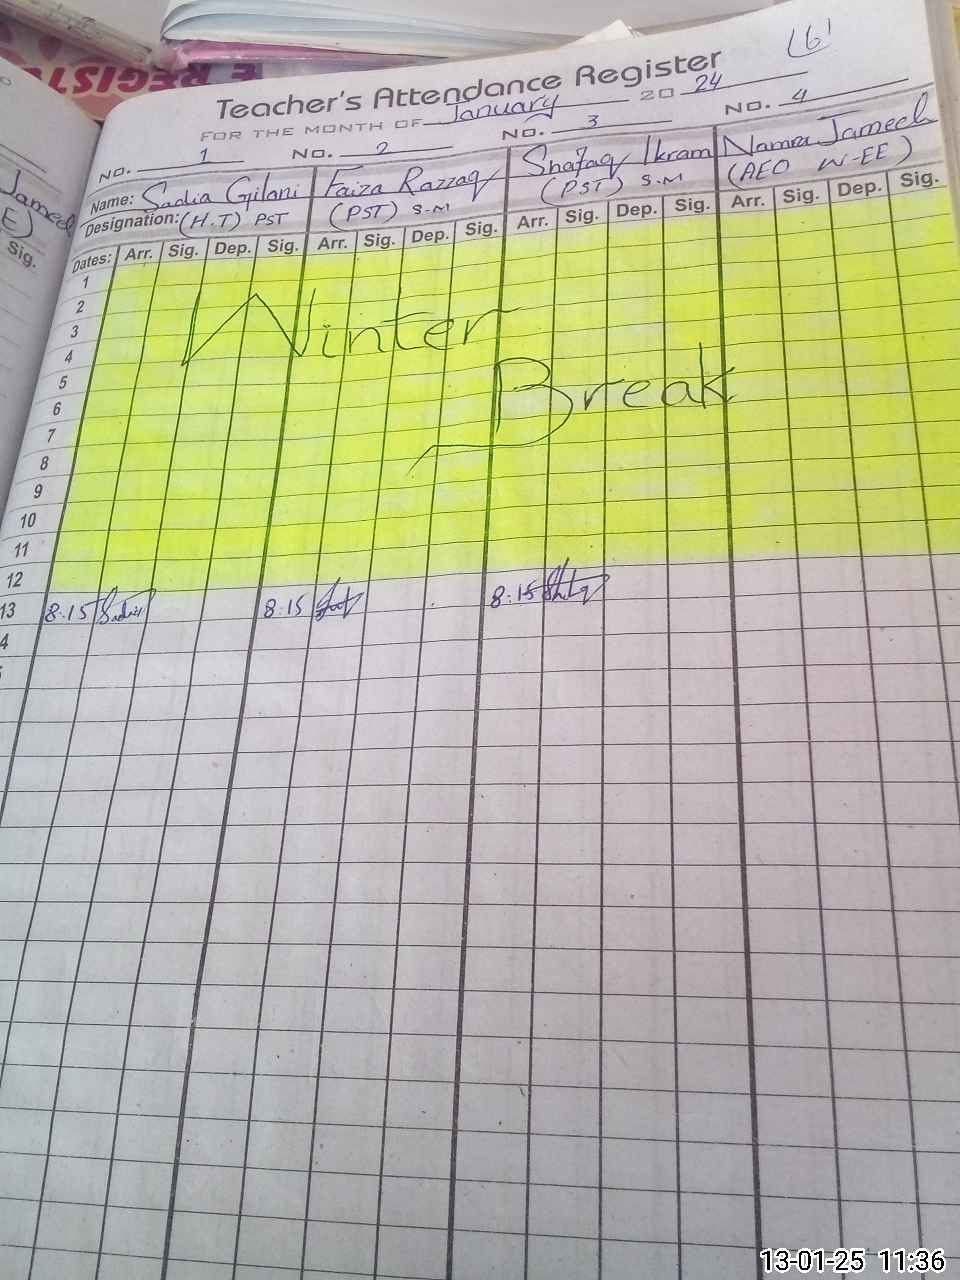 E REGISTE
(6)
Teacher's Attendance Register
FOR THE MONTH OF January 20 24
NO. 1 NO. 2 NO. 3 NO. 4
Name: Sadia Gilani Faiza Razzaq Shafaq Ikram Namra Jameel
Designation: (H.T) PST (PST) S.M (PST) S.M (AEO W-EE)
Dates: Arr. Sig. Dep. Sig. Arr. Sig. Dep. Sig. Arr. Sig. Dep. Sig. Arr. Sig. Dep. Sig.
Jameel
E)
Sig.
1
2
3
4
5
6
7
8
9
10
11
12
Winter
Break
13 8:15 Sadia 8:15 8:15
4
13-01-25 11:36